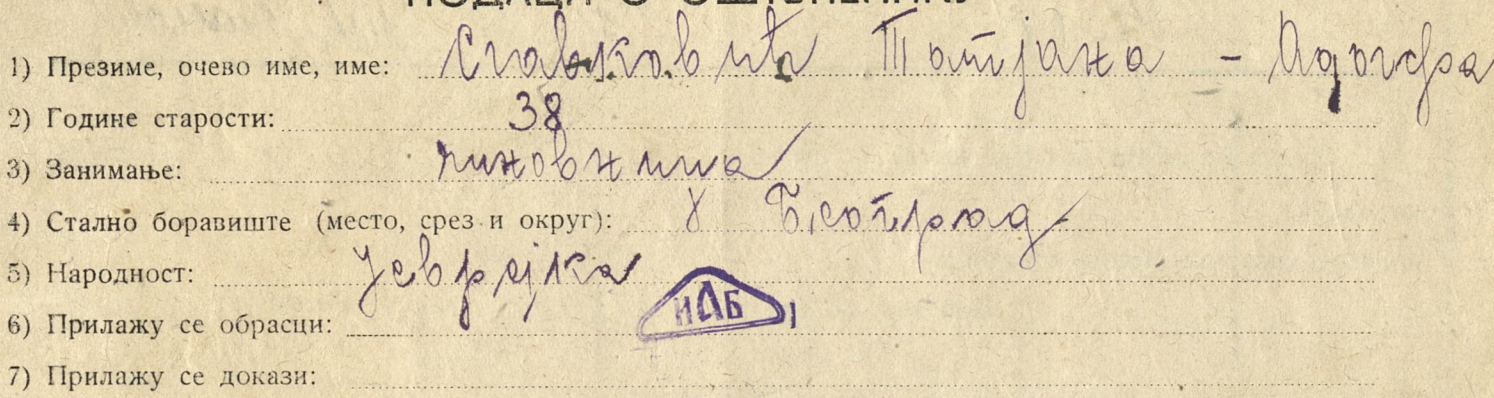 ПОДАЦИ О ОШТЕЋЕНИКУ
1) Презиме, очево име, име: Славковић Татјана - Адолфа
2) Године старости: 38
3) Занимање: чиновница
4) Стално боравиште (место, срез и округ): У Београд
5) Народност: Јеврејка
6) Прилажу се обрасци:
ИАБ
7) Прилажу се докази: